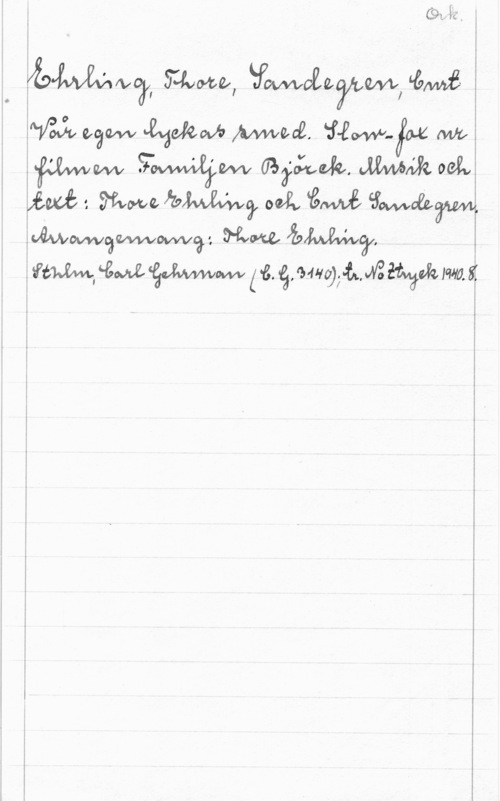 Ork.
Ehrling, Thore, Sandegren, Curt
Vår egen lyckas smed. Slow-fox ur
filmen Familjen Björck. Musik och
text: Thore Ehrling och Curt Sandegren.
Arrangemang: Thore Ehrling.
Sthlm, Carl Gehrman (C.G. 3140); tr. Nottryck 1940. 8.